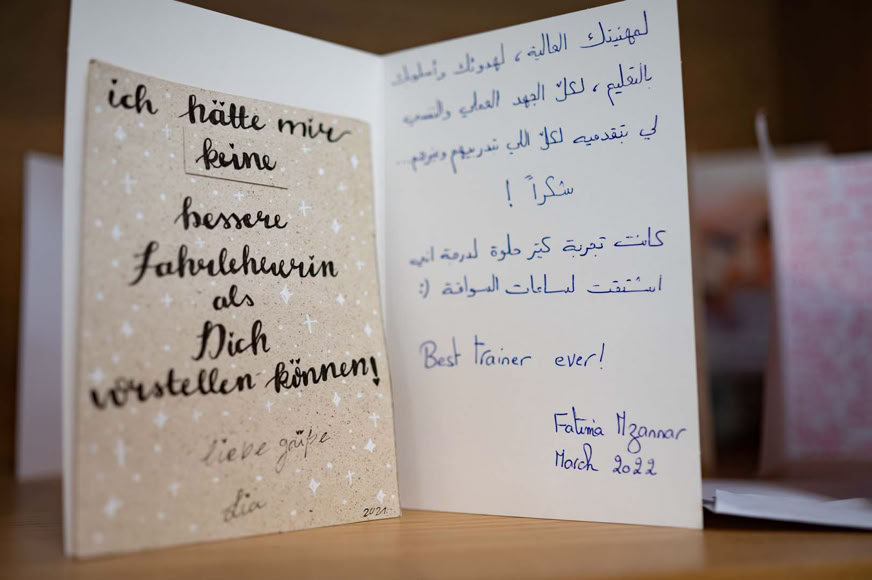 ich hätte mir
keine
bessere
Fahrlehrerin
als
Dich
vorstellen können!
liebe grüße
dia
2021
لمهنيتك العالية، لهدوئك وأسلوبك
بالتعليم، لكلّ الجهد العملي والنفسي
لي بتقدميه لكلّ اللي بتدربيهم وبغيرهم...
شكراً !
كانت تجربة كتير حلوة لدرجة اني
اشتقت لساعات السواقة :)
Best trainer ever!
Fatima Mzannar
March 2022